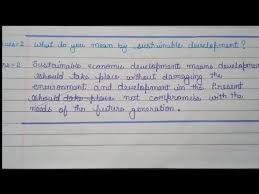 Ques-2 What do you mean by sustainable development?
Ans-2 Sustainable economic development means development
should take place without damaging the
environment and development in the Present
should take place not compromise with the
needs of the future generation.